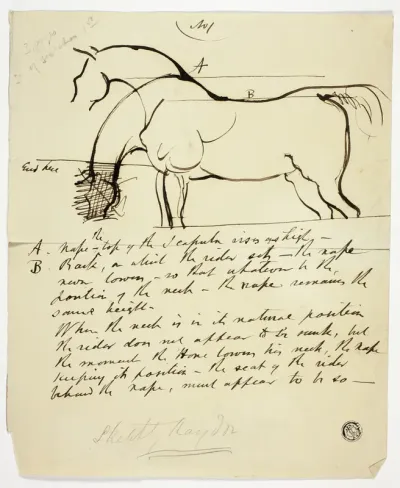 No 1
A
B
A. Nape - the top of the Scapula rises as high -
B. Back, on which the rider sits - the nape
never lowers - so that whatever be the
position of the neck - the nape remains the
same height -
When the neck is in its natural position
the rider does not appear to be sunk, but
the moment the Horse lowers his neck, the nape
keeping its position - the seat of the rider
behind the nape, must appear to be so -
Sketch Haydon